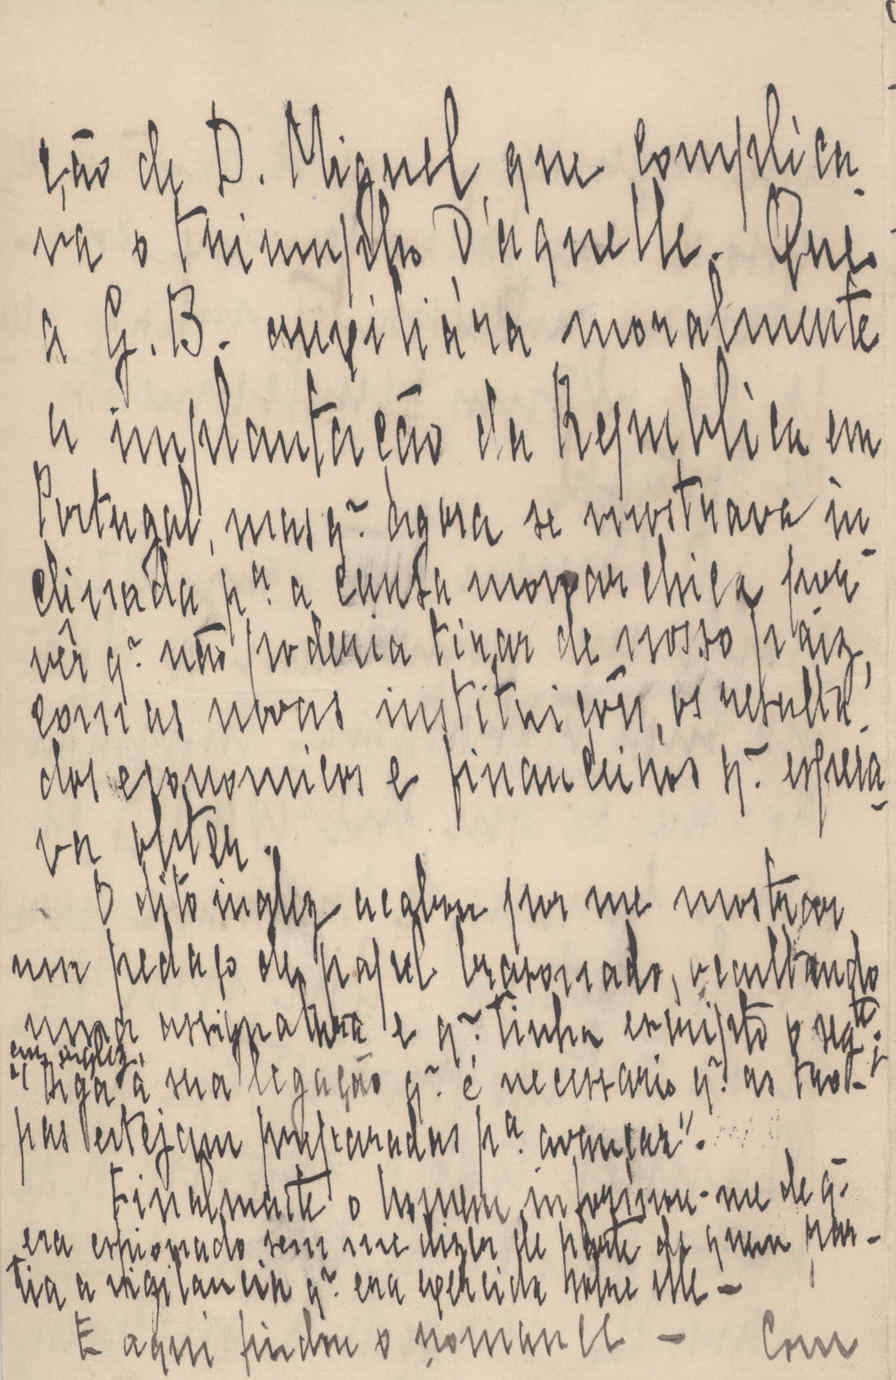 ção de D. Miguel, que complica-
va o triumpho d'aquelle. Que
a G. B. auxiliára moralmente
a implantação da Republica em
Portugal, mas q.^e agora se mostrava in-
clinada p.^a a causa monarchica por
vêr q.^e não poderia tirar do nosso páiz,
com as novas instituições, os resulta-
dos economicos e financeiros q.^e espera-
va obter.
O dito inglez acabou por me mostrar
um pedaço de papel brasonado, occultando
uma assignatura e q.^e tinha escripto o seg.^te
em inglez,
"Diga á sua legação q.^e é necessario q.^e as tro-
pas estejam preparadas p.^a avançar".
Finalmente o homem informou-me de q.^e
era espionado sem me dizer de parte de quem par-
tia a vigilancia q.^e era exercida sobre elle —
E aqui findou o romance — Com